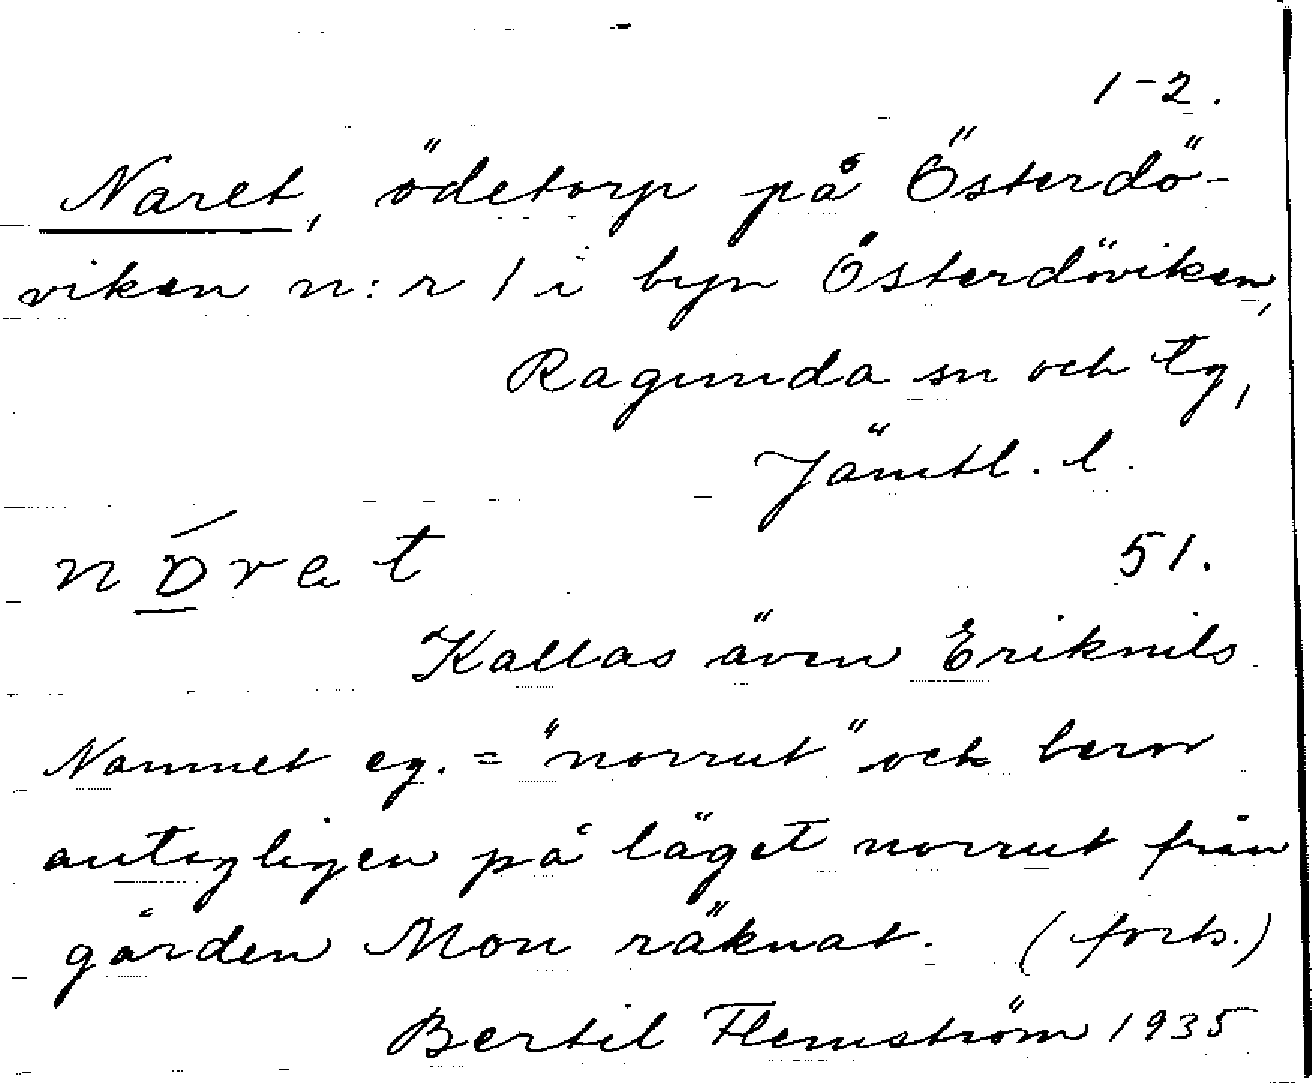 1-2.
Naret, ödetorp på Österdö-
viken n:r 1 i byn Österdöviken,
Ragunda sn och tg,
Jämtl. l.
nóret 51.
Kallas även Eriknils.
Namnet eg. = "norrut" och beror
antagligen på läget norrut från
gården Mon räknat. (forts.)
Bertil Flemström 1935